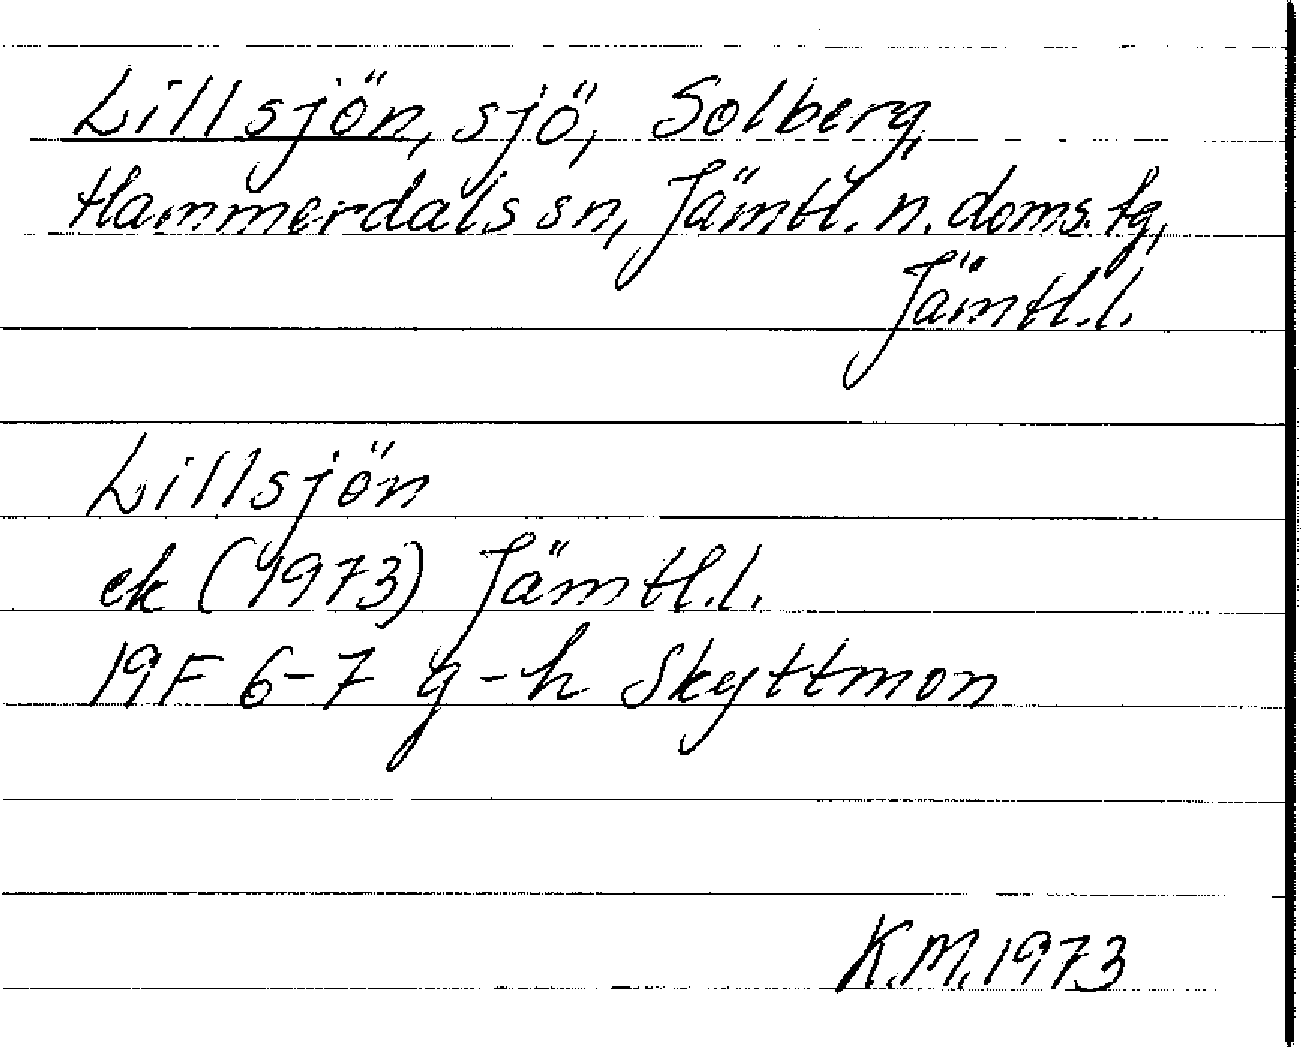 Lillsjön, sjö, Solberg,
Hammerdals sn, Jämtl. n. doms. tg,
Jämtl. l.
Lillsjön
ek (1973) Jämtl. l.
19F 6-7 g-h Skyttmon
K.M. 1973